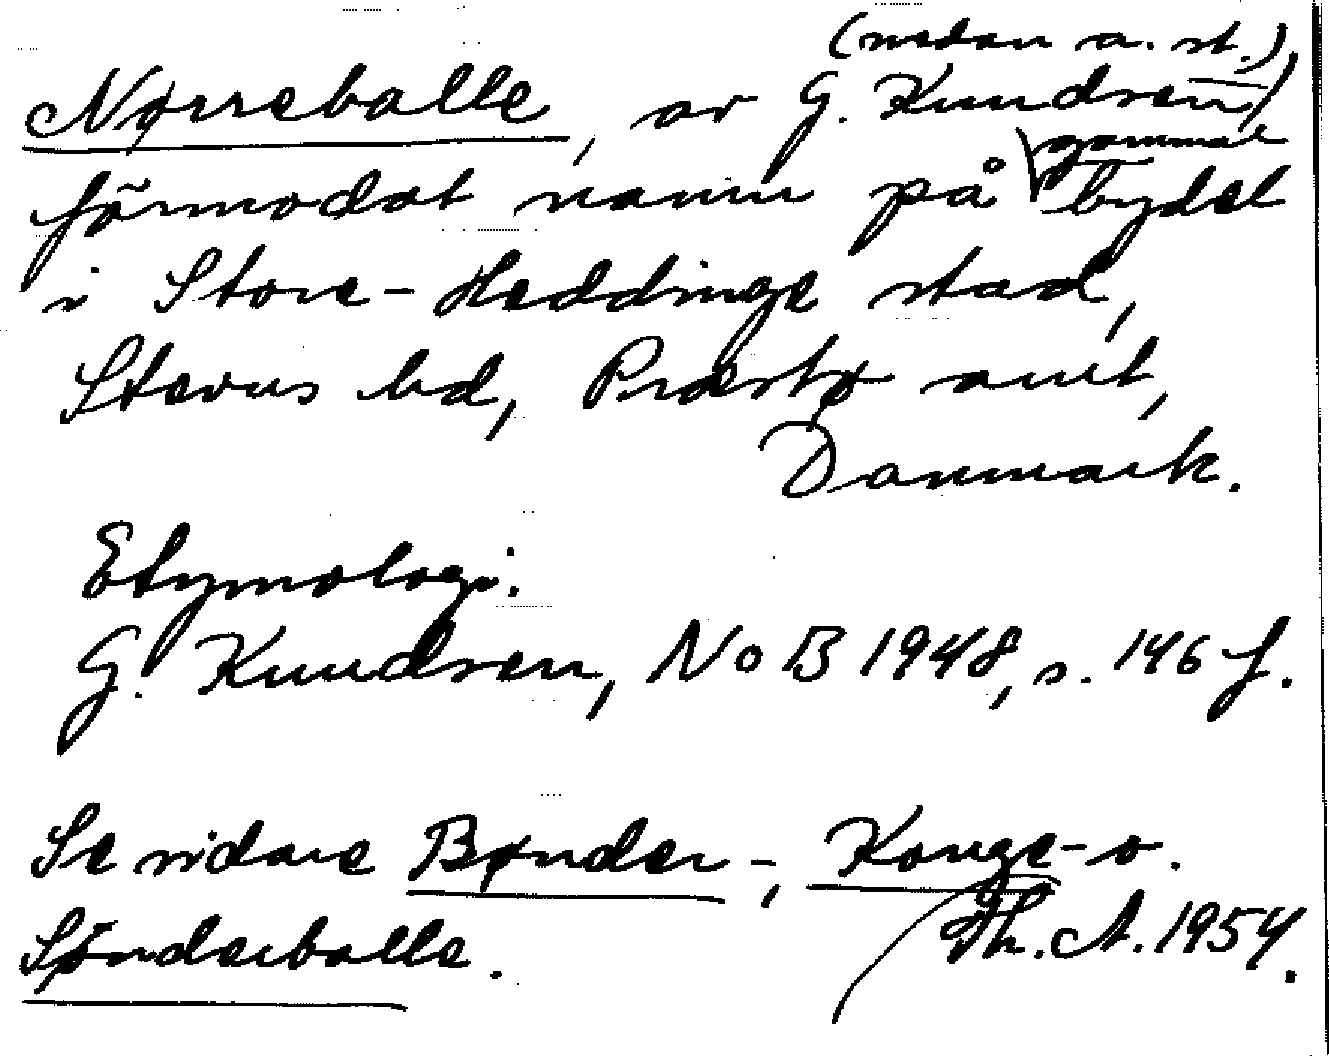 (nedan a. st.)
Nørreballe, av G. Knudsen
förmodat namn på gammal bydel
i Store-Heddinge stad,
Stevns hd, Præstø amt,
Danmark.
Etymologi:
G. Knudsen, NoB 1948, s. 146 f.
Se vidare Bønder-, Konge- o.
Sønderballe.
Th. A. 1954.